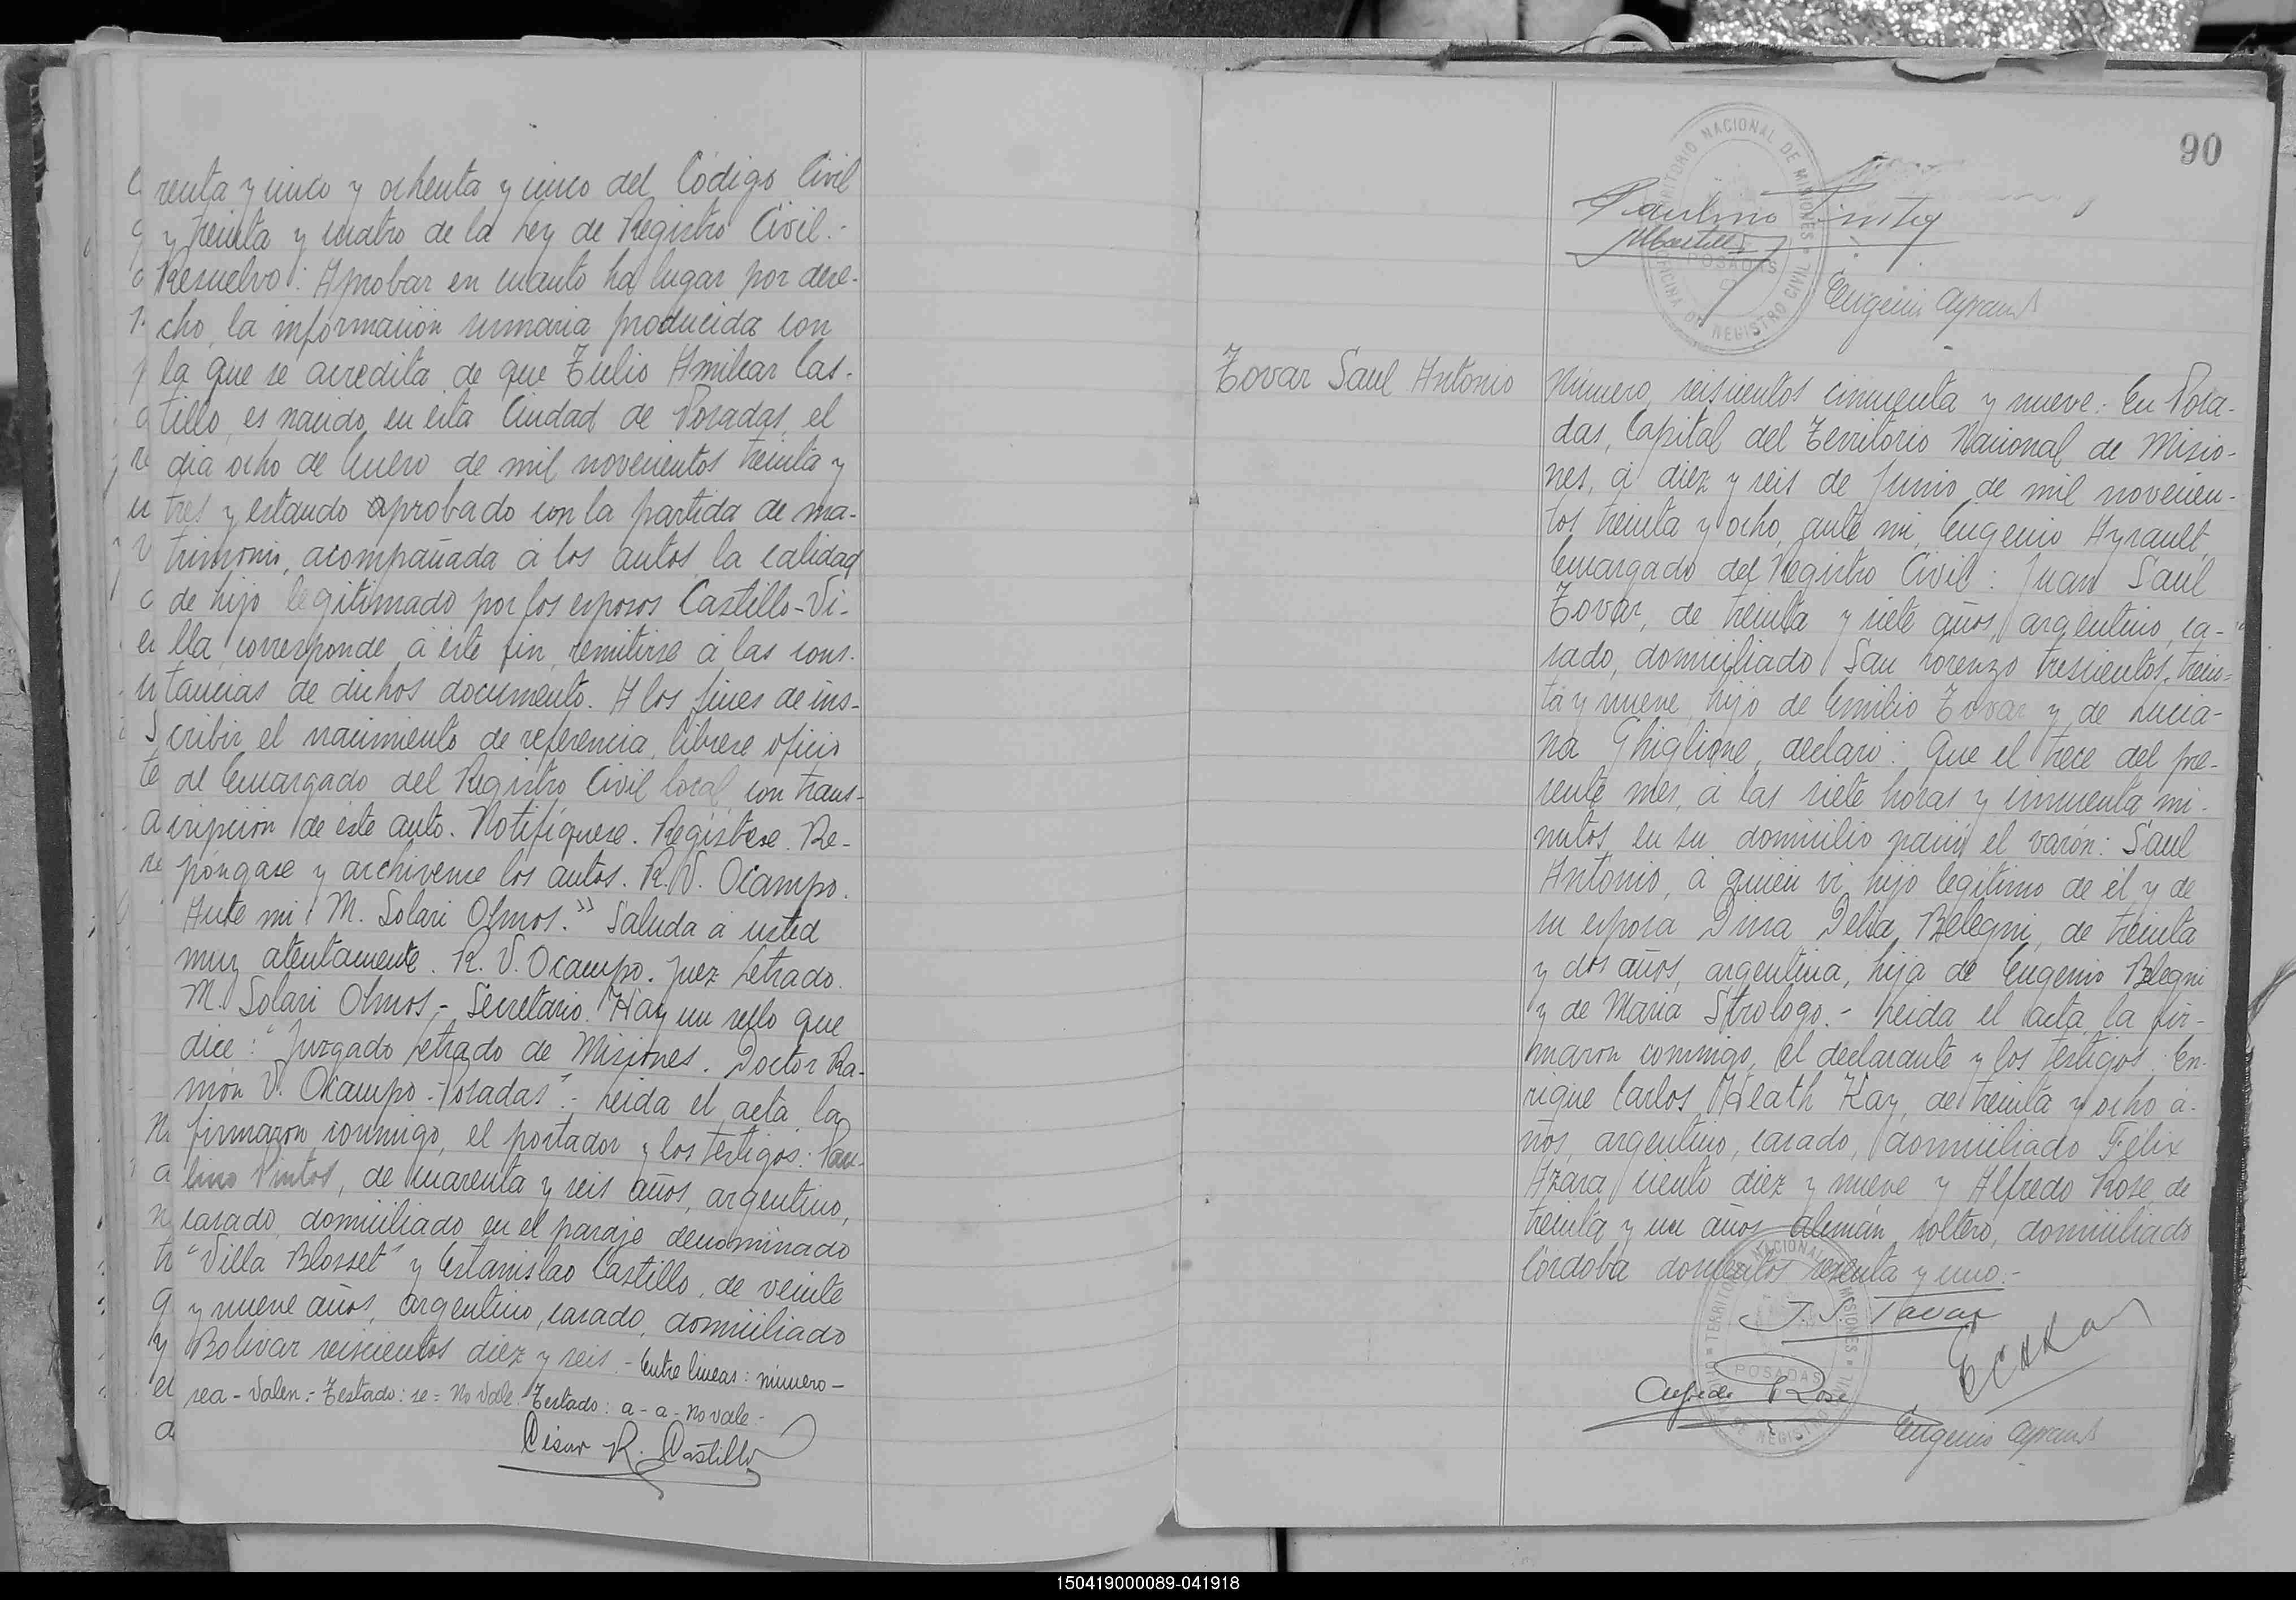 renta y cinco y ochenta y cinco del Código Civil
y treinta y cuatro de la Ley de Registro Civil.-
Resuelvo: Aprobar en cuanto ha lugar por dere-
cho, la información sumaria producida con
la que se acredita de que Tulio Amilcar Cas-
tillo, es nacido en esta Ciudad de Posadas, el
día ocho de Enero de mil novecientos treinta y
tres y estando aprobado con la partida de ma-
trimonio, acompañada a los autos, la calidad
de hijo legitimado por los esposos Castillo-Vi-
lla, corresponde á este fin, remitirse á las cons-
tancias de dichos documento. A los fines de ins-
cribir el nacimiento de referencia, líbrese oficio
al Encargado del Registro Civil local, con trans-
cripción de este auto. Notifíquese. Regístrese. Re-
póngase y archívense los autos. R. V. Ocampo.
Ante mi: M. Solari Olmos." Saluda á usted
muy atentamente. R. V. Ocampo. Juez Letrado.
M. Solari Olmos,- Secretario. Hay un sello que
dice: "Juzgado Letrado de Misiones. Doctor Ra-
món V. Ocampo - Posadas".- Leida el acta, la
firmaron conmigo, el portador y los testigos: Pau-
lino Pintos, de cuarenta y seis años, argentino,
casado, domiciliado en el paraje denominado
"Villa Blosset" y Estanislao Castillo, de veinte
y nueve años, argentino, casado, domiciliado
Bolivar seiscientos diez y seis.- Entre lineas: número-
sea - Valen.- Testado: se = No vale. Testado: a - a - No vale.-
César R. Castillo
90
TERRITORIO NACIONAL DE MISIONES
POSADAS
OFICINA DE REGISTRO CIVIL
Paulino Pintos
Eugenio Ayrault
Tovar Saul Antonio
Número seiscientos cincuenta y nueve: En Posa-
das, Capital del Territorio Nacional de Misio-
nes, á diez y seis de Junio de mil novecien-
tos treinta y ocho, ante mi, Eugenio Ayrault,
Encargado del Registro Civil: Juan Saúl
Tovar, de treinta y siete años, argentino, ca-
sado, domiciliado San Lorenzo trescientos trein-
ta y nueve, hijo de Emilio Tovar y de Lucia-
na Ghiglione, declaró: Que el trece del pre-
sente mes, á las siete horas y cincuenta mi-
nutos, en su domicilio nació el varón: Saul
Antonio, á quien vi, hijo legítimo de él y de
su esposa Dina Delia Belegni, de treinta
y dos años, argentina, hija de Eugenio Belegni
y de María Strologo.- Leida el acta, la fir-
maron conmigo, el declarante y los testigos: En-
rique Carlos Heath Kay, de treinta y ocho a-
ños, argentino, casado, domiciliado Félix
Azara ciento diez y nueve y Alfredo Rose, de
treinta y un años, alemán, soltero, domiciliado
Córdoba doscientos sesenta y uno.-
J. S. Tovar
TERRITORIO NACIONAL DE MISIONES
POSADAS
OFICINA DE REGISTRO CIVIL
Alfredo Rose
Eugenio Ayrault
150419000089-041918